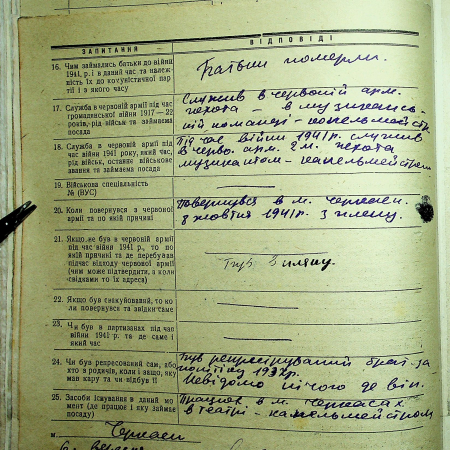 ЗАПИТАННЯ
ВІДПОВІДІ
16. Чим займались батьки до війни
1941 р. і в даний час та належ-
ність їх до комуністичної пар-
тії і з якого часу
Батьки померли.
17. Служба в червоній армії під час
громадянської війни 1917 — 22
років, рід військ та займаєма
посада
Служив в червоній арм.
пехота — в музикансь-
кій команді — капельмейстр.
18. Служба в червоній армії під
час війни 1941 року, який час,
рід військ, останнє військове
звання та займаєма посада
Під час війни 1941 р. служив
в черво. арм. 2 м. пехота
музикантом — капельмейстром
19. Військова спеціяльність
№ (ВУС)
20. Коли повернувся з червоної
армії та по якій причині
Повернувся в м. Черкаси.
з жовтня 1941 р. з плену.
21. Якщо не був в червоній армії
під час війни 1941 р., то по
якій причині та де перебував
під час відходу червоної армії
(чим може підтвердити, а коли
свідками то їх адреса)
Був з плену.
22. Якщо був евакуйований, то ко-
ли повернувся та звідки саме
23. Чи був в партизанах під час
війни 1941 р. та де саме і
який час
24. Чи був репресований сам, або
хто з родичів, коли і защо, яку
мав кару та чи відбув її
Був репресируваний брат за
політику 1937 р.
Невідомо нічого де він.
25. Засоби існування в даний мо-
мент (де працює і яку займає
посаду)
Працюю в м. Черкасах
в театрі — капельмейстром
м. Черкаси